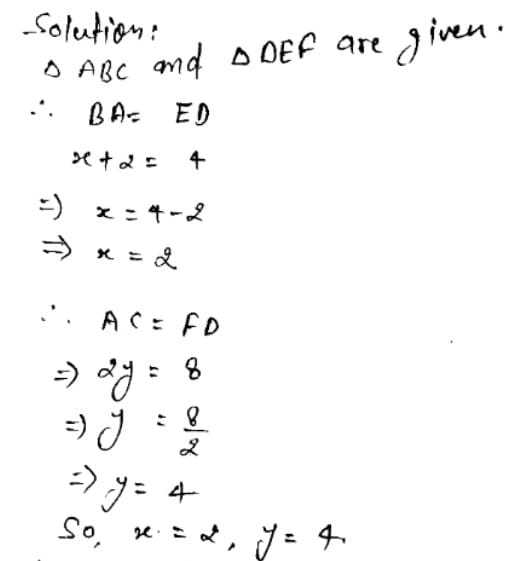 Solution:
Δ ABC and Δ DEF are given.
∴ BA = ED
x + 2 = 4
⇒ x = 4 - 2
⇒ x = 2
∴ AC = FD
⇒ 2y = 8
⇒ y = 8/2
⇒ y = 4
So, x = 2, y = 4.